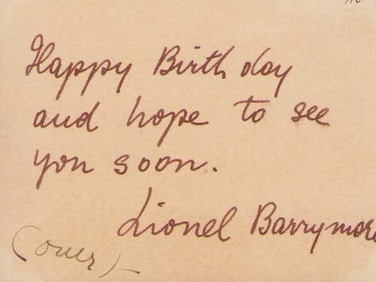 Happy Birth day
and hope to see
you soon.
Lionel Barrymore
(over)